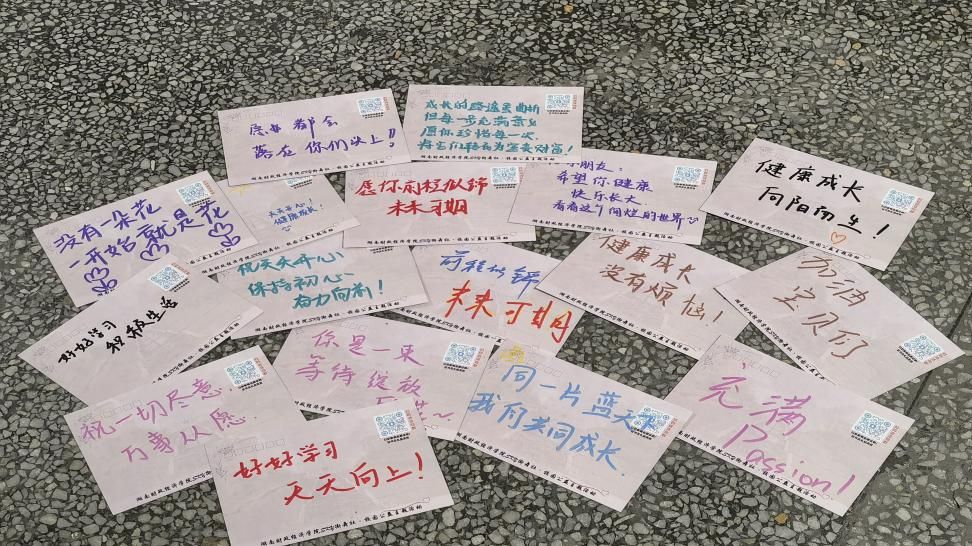 愿
都会
落在你们头上!!
成长的路途虽曲折
但每一步充满意义
愿你珍惜每一次
将它们转化为宝贵财富!
愿你前程似锦
未来可期
小朋友:
希望你健康
快乐长大
看看这个闪烂的世界
健康成长
向阳而生!
没有一朵花
一开始就是花
天天开心!
健康成长!
祝天天开心
保持初心
奋力向前!
前程似锦
未来可期
健康成长
没有烦恼!
加油
宝贝们
好好学习
积极生活
祝一切尽意
万事从愿
你是一束
等待绽放
同一片蓝天下
我们共同成长.
充满
Passion!
好好学习
天天向上!
湖南财政经济学院